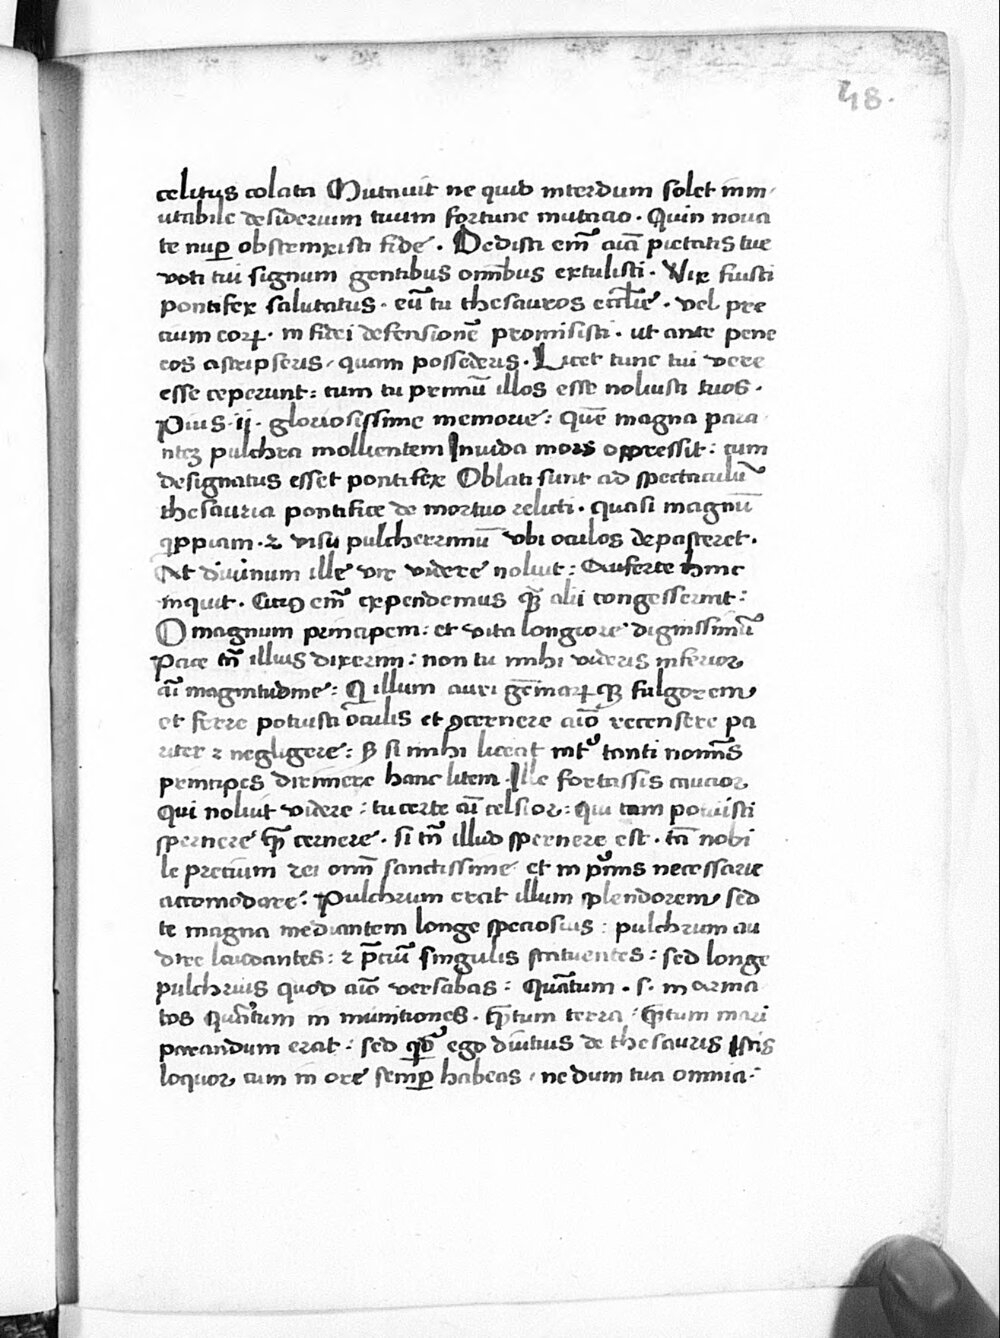 48.
celitus colata Mutauit ne quid interdum solet inm-
utabile desiderium tuum fortune mutatio. Quin noua
te nuper obstrinxisti fide. Dedisti em̄ aīa pietatis tue
voti tui signum gentibus omībus extulisti. Vix fuisti
pontifex salutatus. eū tu thesauros eccl̄ie. vel pre
cium eoꝝ. in fidei defensionē promisisti. ut ante pene
eos astripseris, quam possederis. Licet tunc tui vere
esse ceperunt: cum tu primū illos esse noluisti tuos.
Pius. ii. gloriosissime memorie: Quē magna para
ntē pulchra mollientem Inuida mors oppressit: cum
designatus esset pontifex Oblati sunt ad spectaculū
thesauria pontifice de mortuo relicti. quasi magnū
qꝓpiam. ⁊ visu pulcherrimū vbi oculos depasceret.
At diuinum ille vir videre noluit: Auferte hinc
inquit. Cito em̄ expendemus qd̄ alii congesserint:
O magnum principem: et vita longiore dignissimū
Pace tn̄ illius dixerim: non tu mihi videris inferior
aī magnitudine: Qui illum auri gēmarꝝ qꝫ fulgorem
et ferre potuisti oculis et ꝯcernere aīo recensere pa
riter ⁊ negligere: Qd si mihi liceat int̾ tanti nomīs
principes dirimere hanc litem. Ille fortassis caucior
qui noluit videre: tu certe aī celsior: Qui tam potuisti
spernere qm̄ cernere. si tn̄ illud spernere est. tā nobi
le precium rei om̄ sanctissime et in pīmis necessarie
accomodare: Pulchrum erat illum splendorem sed
te magna meditantem longe speciosius: pulchrum au
dire laudantes: ⁊ p̄ciū singulis statuentes: sed longe
pulchrius quod aīo versabas: Quātum. s. in arma
tos Quātum in munitiones. qn̄tum terra: qn̄tum mari
parandum erat: sed qd̄ ego diutius de thesauris Istis
loquor cum in ore semꝑ habeas, ne dum tua omnia: